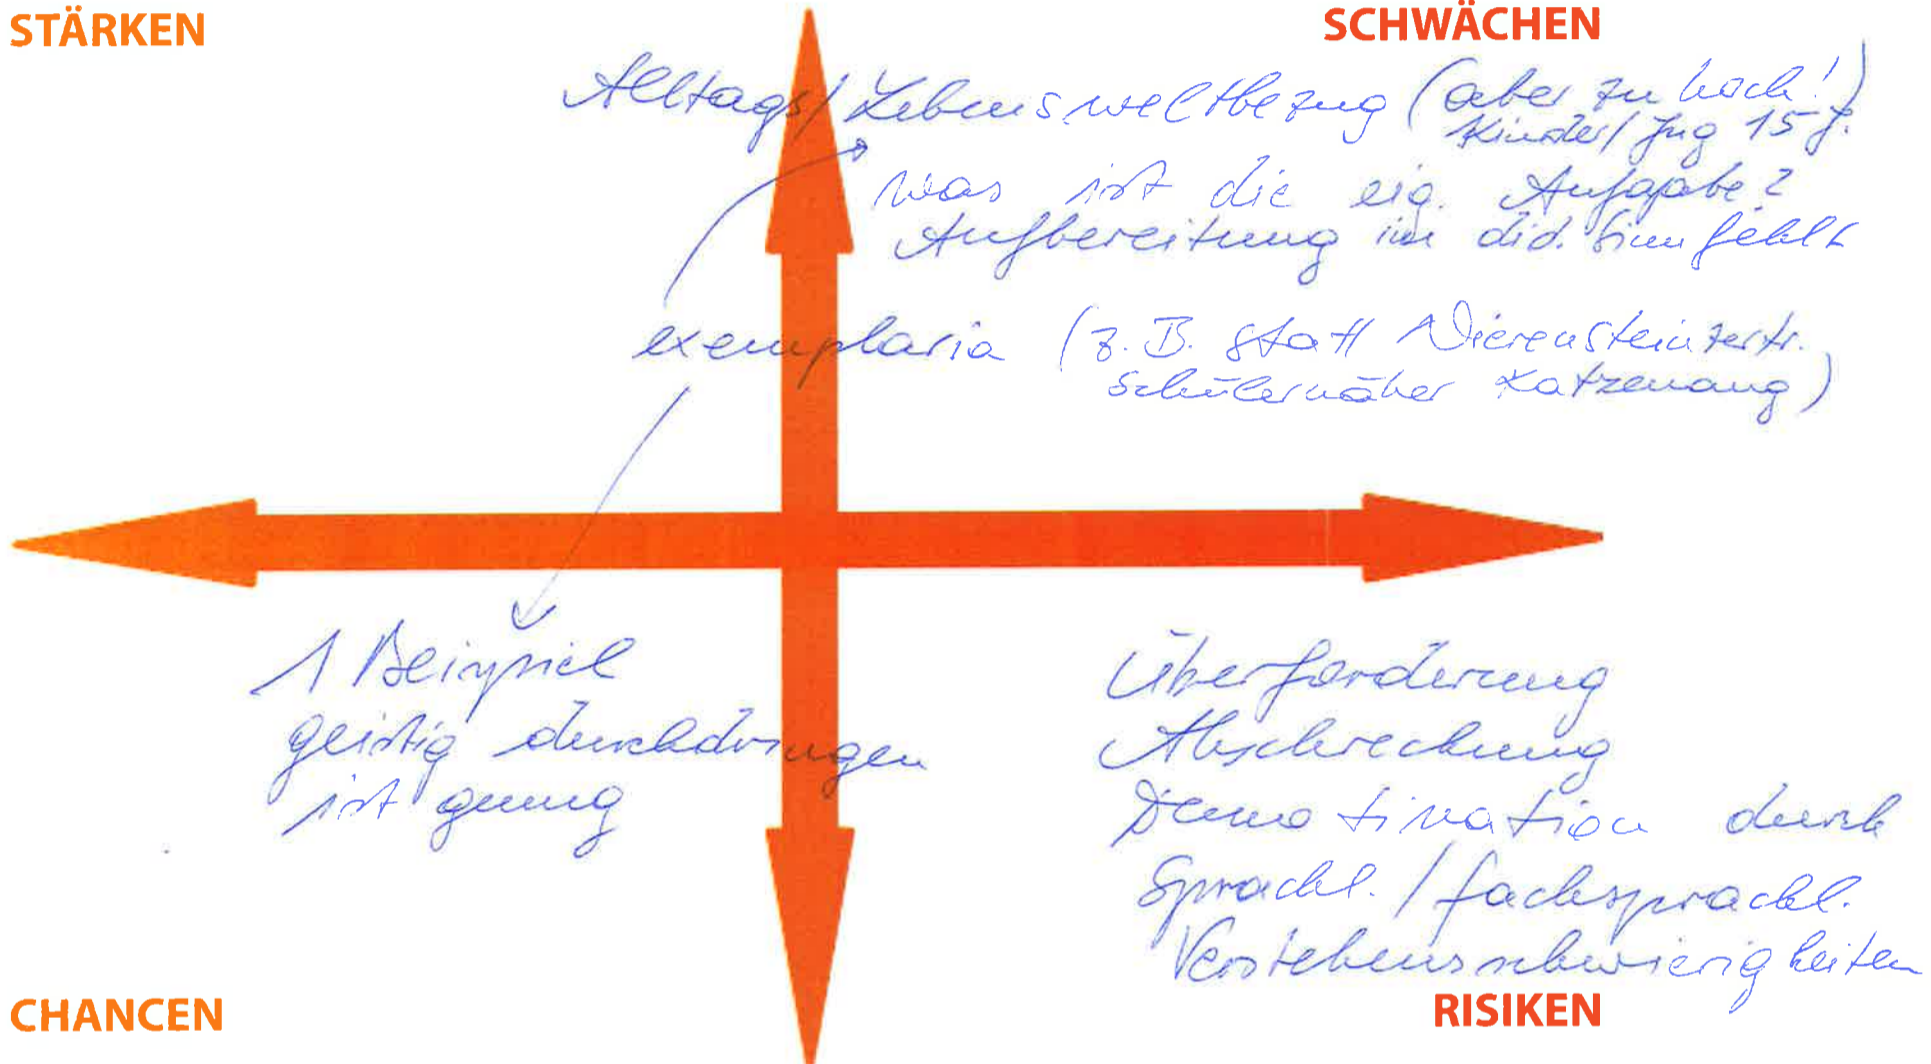 STÄRKEN
SCHWÄCHEN
Alltags/Lebensweltbezug (aber zu hoch!)
Kinder/Jug 15 J.
was ist die eig. Aufgabe?
Aufbereitung im did. Sinn fehlt
exemplaria (z.B. statt Nierensteinzertr.
schülernäher Katzenaug)
1 Beispiel
geistig durchdringen
ist genug
Überforderung
Abschreckung
Demotivation durch
Sprachl./fachsprachl.
Verstehensschwierigkeiten
CHANCEN
RISIKEN